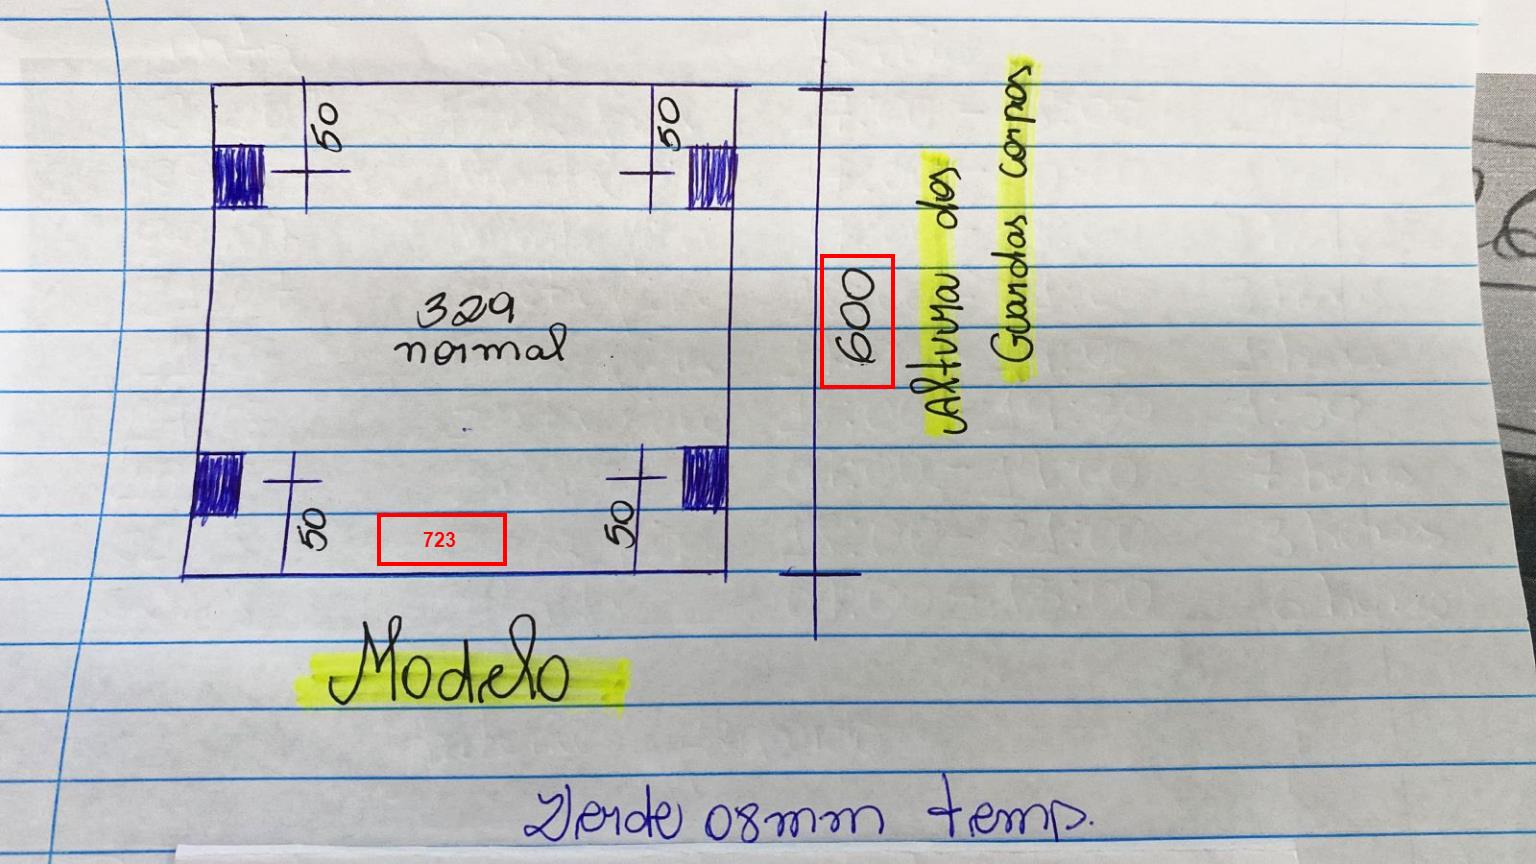 50
50
329
normal
600
Altura dos
Guardas corpos
50
723
50
Modelo
Verde 08mm temp.